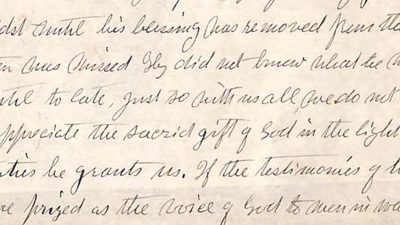 dst until his blessing was removed from the
en was missed they did not know what he w
ntil to late, just so with us all we do not
appreciate the sacrid gift of God in the light
he grants us. If the testimonies of
re prized as the voice of God to men in